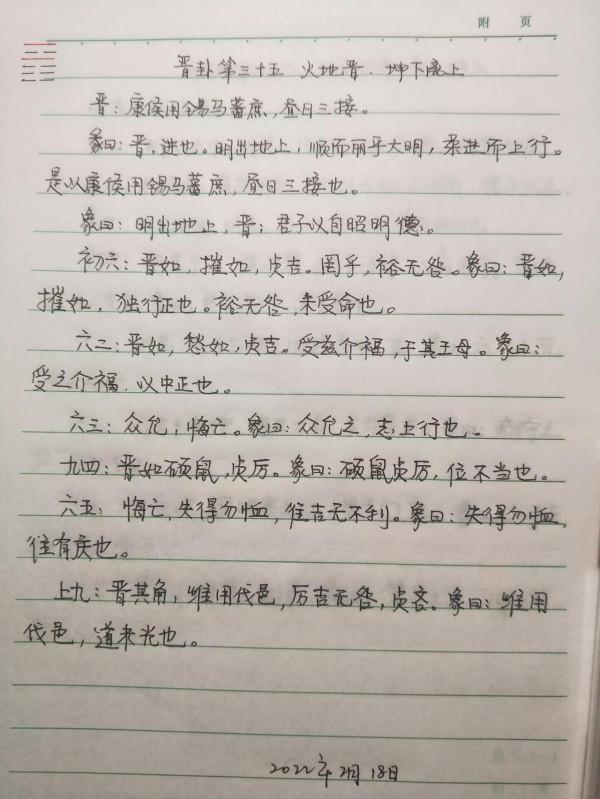 附 页
晋卦第三十五 火地晋.坤下离上
晋:康侯用锡马蕃庶,昼日三接。
彖曰:晋,进也。明出地上,顺而丽乎大明,柔进而上行。
是以康侯用锡马蕃庶,昼日三接也。
象曰:明出地上,晋;君子以自昭明德。
初六:晋如,摧如,贞吉。罔孚,裕无咎。象曰:晋如,
摧如,独行正也。裕无咎,未受命也。
六二:晋如,愁如,贞吉。受兹介福,于其王母。象曰:
受之介福,以中正也。
六三:众允,悔亡。象曰:众允之,志上行也。
九四:晋如硕鼠,贞厉。象曰:硕鼠贞厉,位不当也。
六五:悔亡,失得勿恤,往吉无不利。象曰:失得勿恤,
往有庆也。
上九:晋其角,维用伐邑,厉吉无咎,贞吝。象曰:维用
伐邑,道未光也。
2022年2月18日